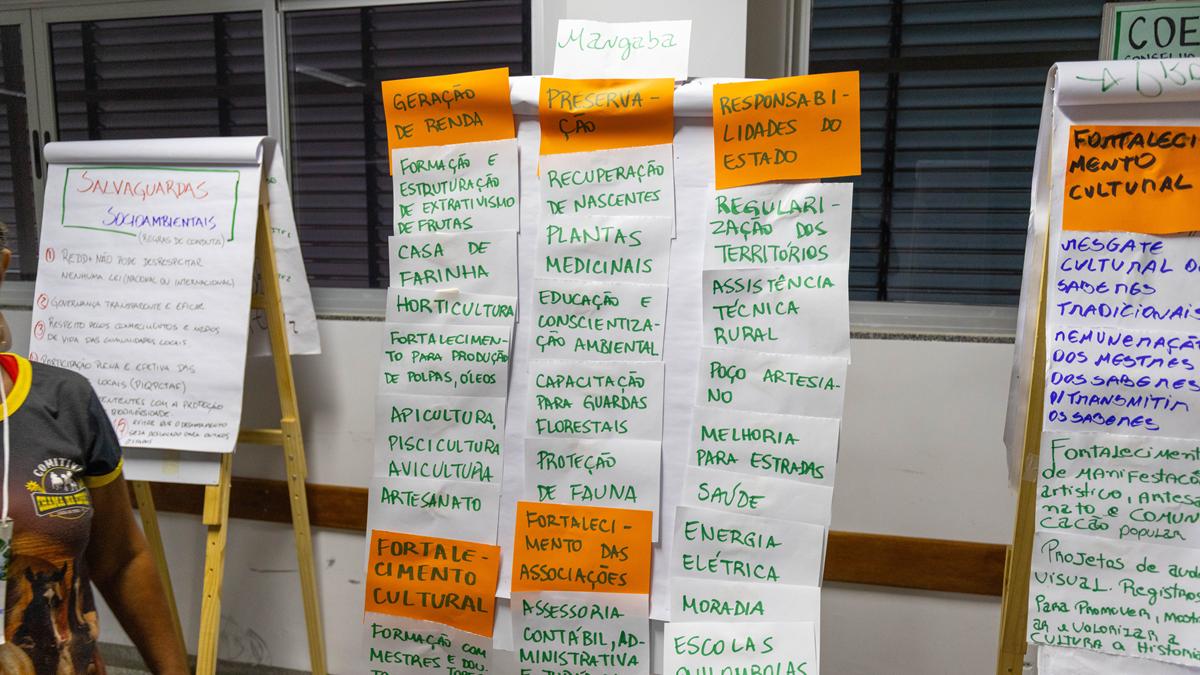 SALVAGUARDAS
SOCIOAMBIENTAIS
(REGRAS DE CONDUTA)
1 REDD+ NÃO PODE DESRESPEITAR
NENHUMA LEI (NACIONAL OU INTERNACIONAL)
2 GOVERNANÇA TRANSPARENTE E EFICAZ
3 RESPEITO PELOS CONHECIMENTOS E MODOS
DE VIDA DAS COMUNIDADES LOCAIS
PARTICIPAÇÃO PLENA E EFETIVA DAS
LOCAIS (PIQPCTAF)
COM A PROTEÇÃO
BIODIVERSIDADE.
EVITAR QUE O DESMATAMENTO
SEJA DESLOCADO PARA OUTROS
COMITIVA
Mangaba
GERAÇÃO
DE RENDA
FORMAÇÃO E
ESTRUTURAÇÃO
DE EXTRATIVISMO
DE FRUTAS
CASA DE
FARINHA
HORTICULTURA
FORTALECIMEN-
TO PARA PRODUÇÃO
DE POLPAS, ÓLEOS
APICULTURA,
PISCICULTURA
AVICULTURA
ARTESANATO
FORTALE-
CIMENTO
CULTURAL
FORMAÇÃO COM
MESTRES E DOU-
PRESERVA-
ÇÃO
RECUPERAÇÃO
DE NASCENTES
PLANTAS
MEDICINAIS
EDUCAÇÃO E
CONSCIENTIZA-
ÇÃO AMBIENTAL
CAPACITAÇÃO
PARA GUARDAS
FLORESTAIS
PROTEÇÃO
DE FAUNA
FORTALECI-
MENTO DAS
ASSOCIAÇÕES
ASSESSORIA
CONTÁBIL, AD-
MINISTRATIVA
RESPONSABI-
LIDADES DO
ESTADO
REGULARI-
ZAÇÃO DOS
TERRITÓRIOS
ASSISTÊNCIA
TÉCNICA
RURAL
POÇO ARTESIA-
NO
MELHORIA
PARA ESTRADAS
SAÚDE
ENERGIA
ELÉTRICA
MORADIA
ESCOLAS
QUILOMBOLAS
COE
CONSELHO
FORTALECI
MENTO
CULTURAL
RESGATE
CULTURAL D
SABERES
TRADICIONAIS
REMUNERAÇÃ
DOS MESTRES
DOS SABERES
P/ TRANSMITIR
OS SABERES
Fortaleciment
de manifestaçõ
artístico, Artesa
nato e comuni
cação popular
Projetos de aud
visual. Registros
Para promover, most
ar e valorizar a
cultura a Historia